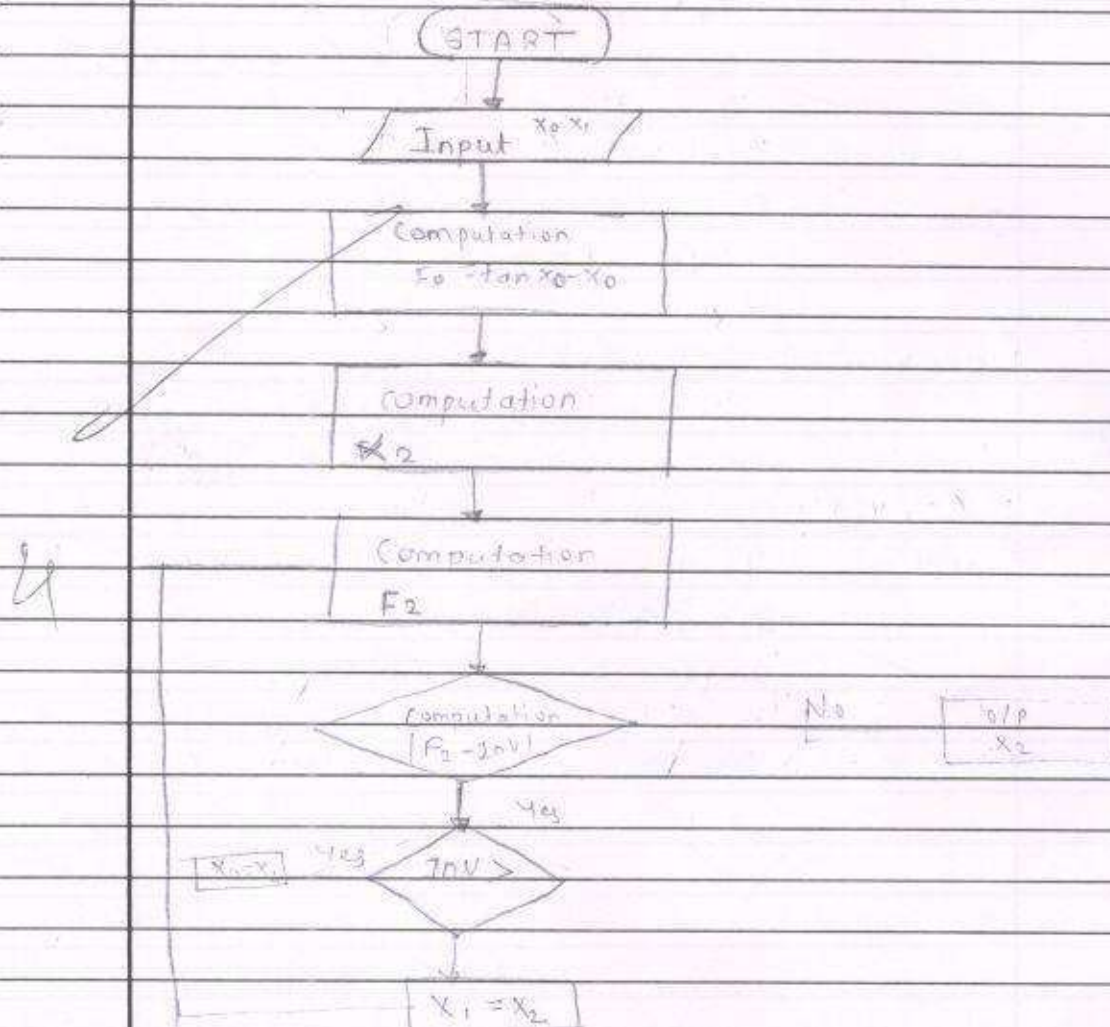 START
Input x₀ x₁
Computation
F₀ = tan x₀ - x₀
computation
x₂
Computation
4
F₂
computation
No
O/P
x₂
Yes
Yes
InV >
x₁ = x₂